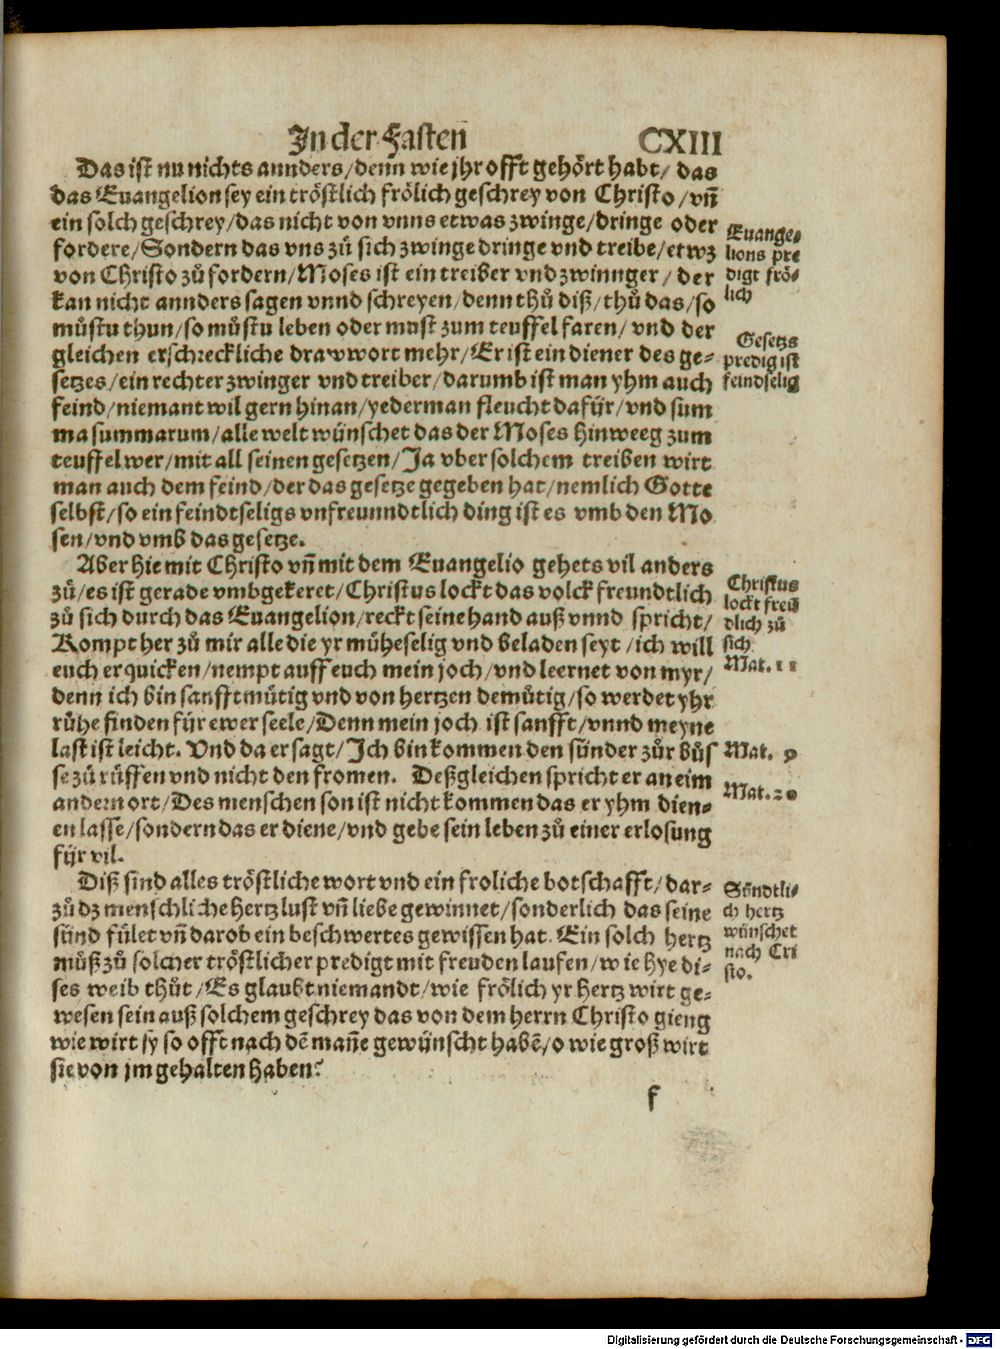 In der Fasten CXIII
Das ist nu nichts annders/denn wie jhr offt gehört habt/ das
das Euangelion sey ein tröstlich frölich geschrey von Christo/vñ
ein solch geschrey/das nicht von vnns etwas zwinge/dringe oder
fordere/Sondern das vns zů sich zwinge dringe vnd treibe/etwz
von Christo zů fordern/Moses ist ein treiber vnd zwinnger/ der
kan nicht annders sagen vnnd schreyen/denn thů diß/thů das/so
můstu thun/so můstu leben oder must zum teuffel faren/ vnd der
gleichen erschreckliche drawwort mehr/Er ist ein diener des ge-
setzes/ein rechter zwinger vnd treiber/darumb ist man yhm auch
feind/niemant wil gern hinan/yederman fleucht dafür/vnd sum
ma summarum/alle welt wünschet das der Moses hinweeg zum
teuffel wer/mit all seinen gesetzen/Ja vber solchem treiben wirt
man auch dem feind/der das gesetze gegeben hat/nemlich Gotte
selbst/so ein feindtseligs vnfreunndtlich ding ist es vmb den Mo
sen/vnd vmb das gesetze.
Aber hie mit Christo vñ mit dem Euangelio gehets vil anders
zů/es ist gerade vmbgekeret/Christus lockt das volck freundtlich
zů sich durch das Euangelion/reckt seine hand auß vnnd spricht/
Kompt her zů mir alle die yr müheselig vnd beladen seyt/ich will
euch erquicken/nempt auff euch mein joch/vnd leernet von myr/
denn ich bin sanfftmütig vnd von hertzen demütig/so werdet yhr
růhe finden für ewer seele/Denn mein joch ist sanfft/vnnd meyne
last ist leicht. Vnd da er sagt/Ich bin kommen den sünder zůr bůs
se zů růffen vnd nicht den fromen. Deßgleichen spricht er an eim
andern ort/Des menschen son ist nicht kommen das er yhm dien-
en lasse/sondern das er diene/vnd gebe sein leben zů einer erlosung
für vil.
Diß sind alles tröstliche wort vnd ein froliche botschafft/dar-
zů dz menschliche hertz lust vñ liebe gewinnet/sonderlich das seine
sünd fület vñ darob ein beschwertes gewissen hat. Ein solch hertz
můß zů solcher tröstlicher predigt mit freuden laufen/wie hye di-
ses weib thůt/Es glaubt niemandt/wie frölich yr hertz wirt ge-
wesen sein auß solchem geschrey das von dem herrn Christo gieng
wie wirt sy so offt nach dē mañe gewünscht habē/o wie groß wirt
sie von jm gehalten haben?
f
Euange-
lions pre
digt frö-
lich
Gesetzs
predig ist
feindselig
Christus
lockt freü
dlich zů
sich
Mat. 11
Mat. 9
Mat. 20
Sündtli-
ch hertz
wünschet
nach Cri
sto.
Digitalisierung gefördert durch die Deutsche Forschungsgemeinschaft - DFG